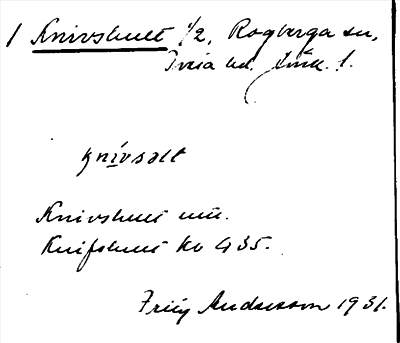 1 Knivshult 1/2, Rogberga sn,
Tveta hd. Jönk. l.
knívsəlt
Knivshult
Knifshult kv 435.
Fritz Andersson 1931.